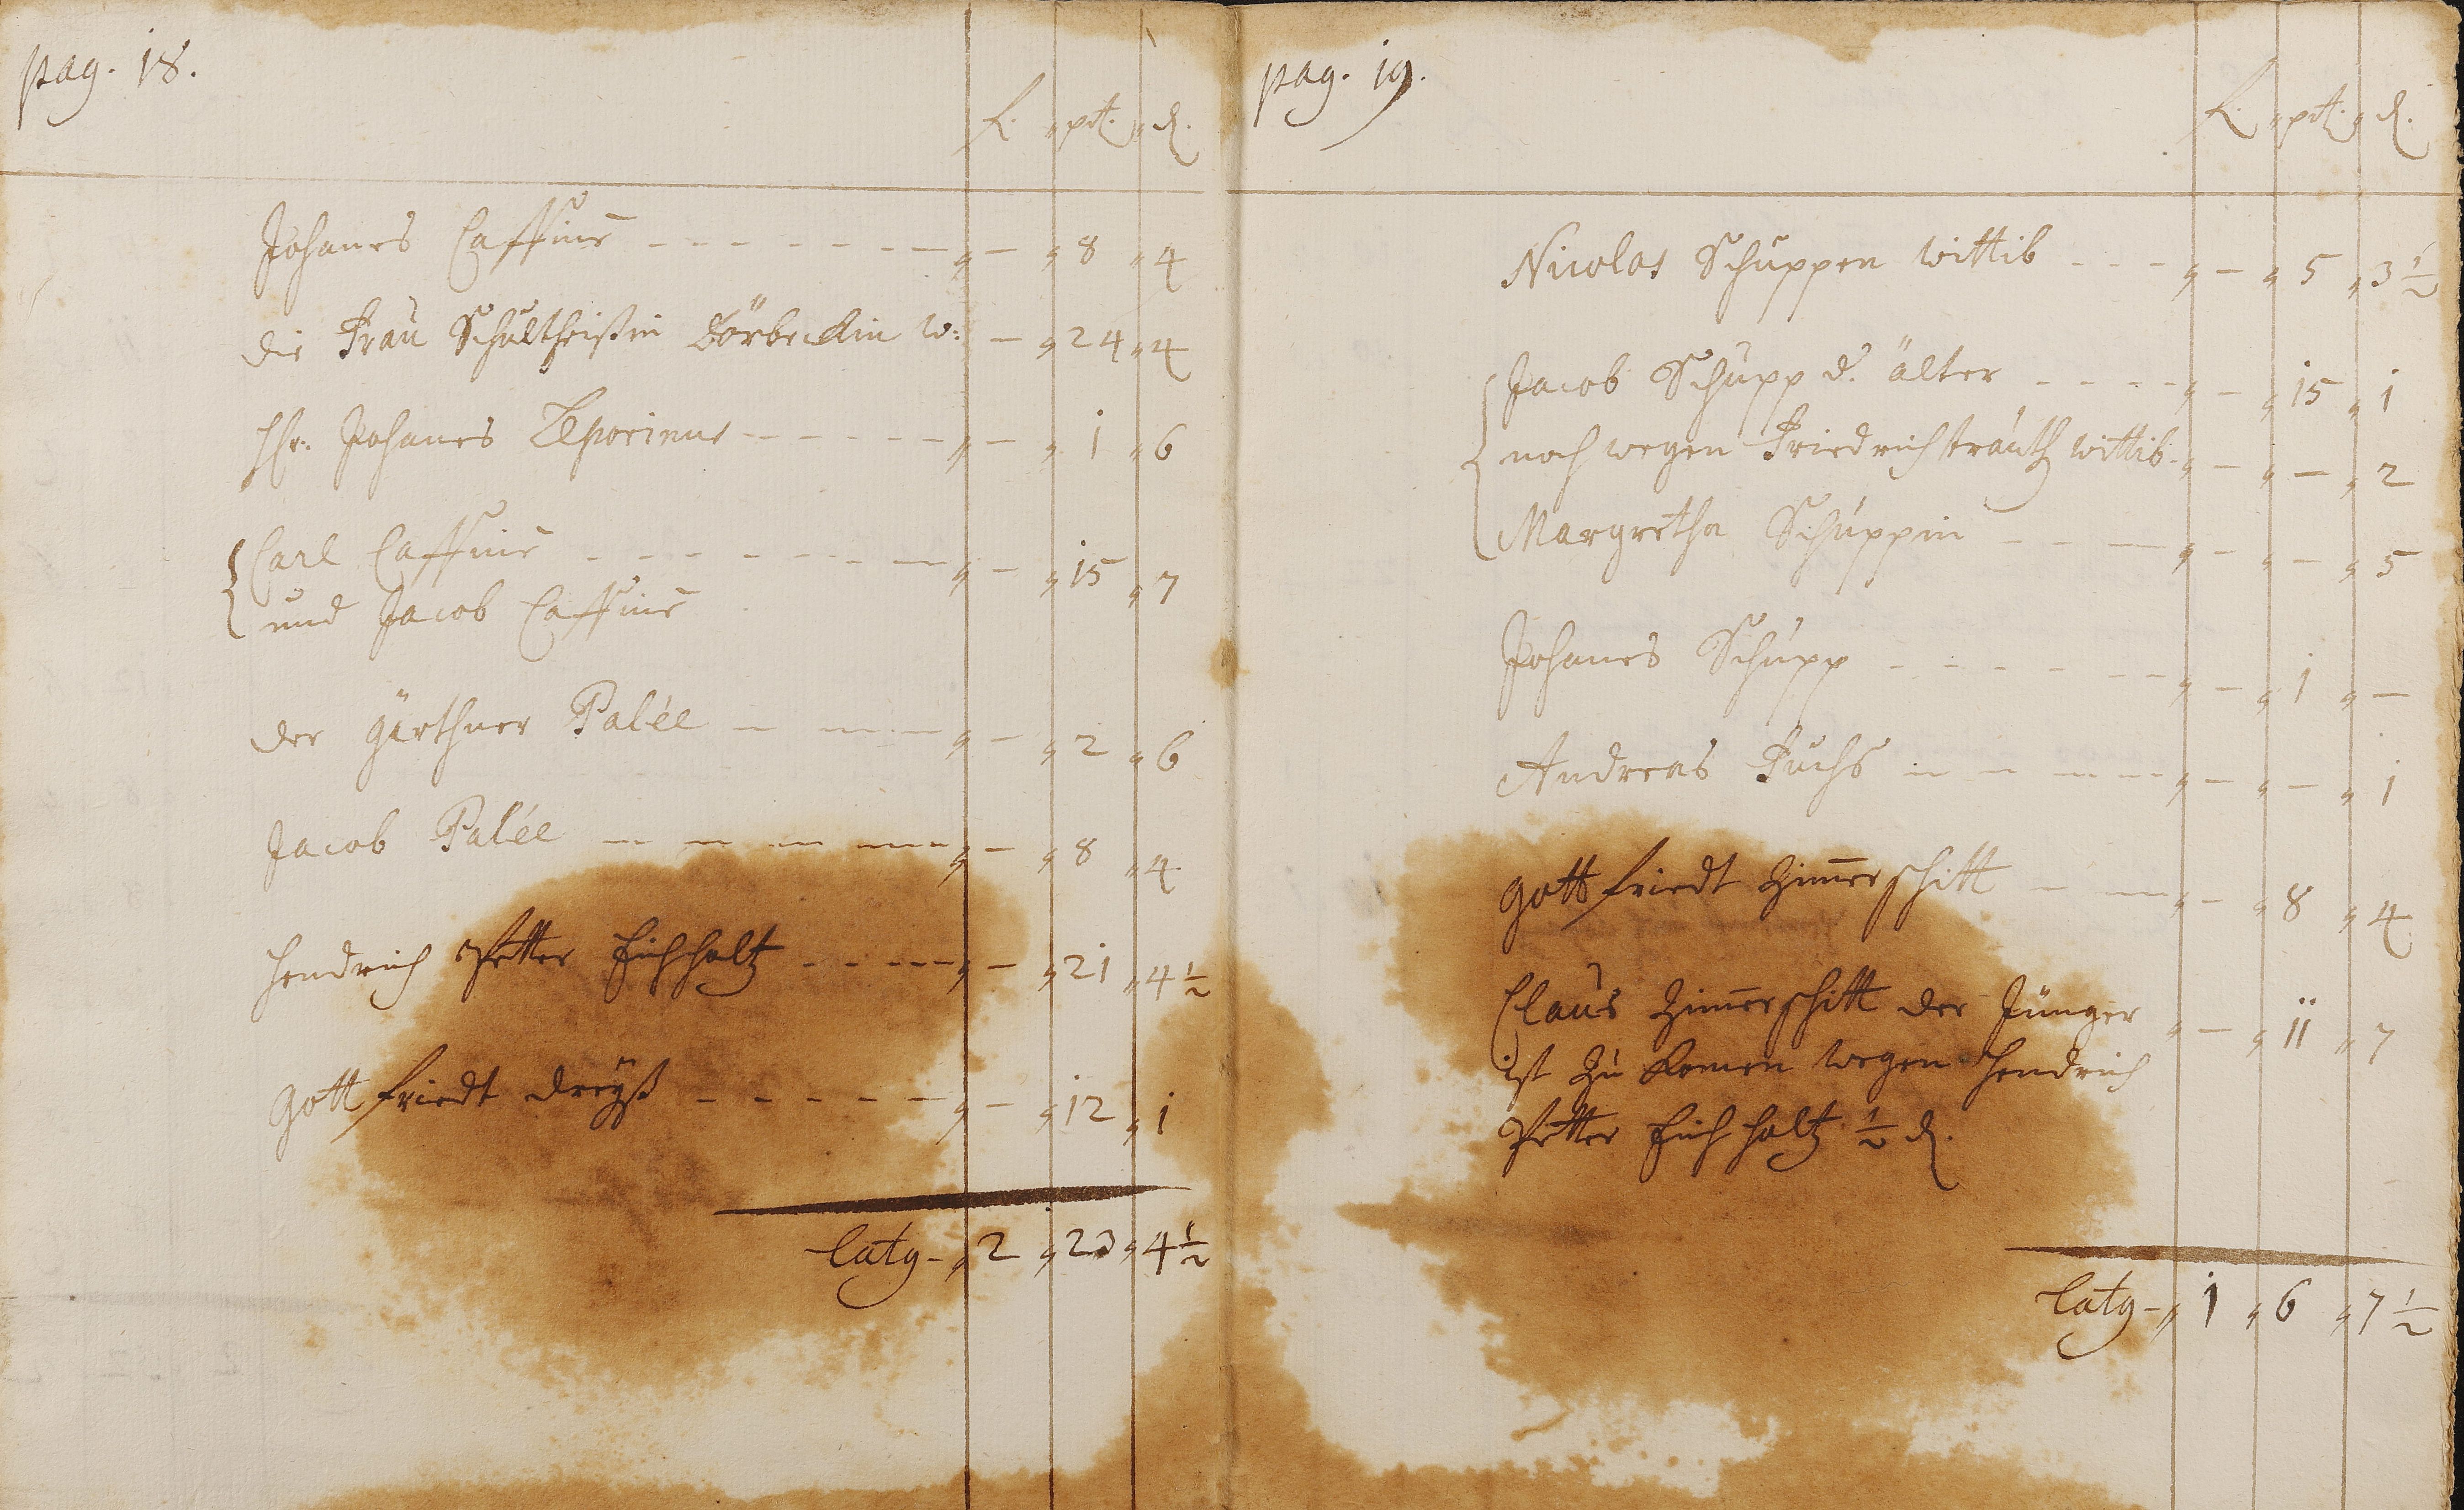 pag. 18.
fl. " pet. " d.
Johanes Cassius - - - - - - - " - " 8 " 4
die Frau Schultheißin Börbeckin w: - " 24 " 4
Hr. Johanes Leporinus - - - - - - " - " 1 " 6
Carl Cassius - - - - - - - " - " 15 " 7
und Jacob Cassius
der gärthner Palée - - - - " - " 2 " 6
Jacob Palée - - - - - " - " 8 " 4
Hendrich Petter Eichholtz - - - - - " - " 21 " 4 ½
Gottfriedt Dreyß - - - - - - " - " 12 " 1
Latg - " 2 " 23 " 4 ½
pag. 19.
fl. " pet. " d.
Nicolas Schuppen wittib - - - " - " 5 " 3 ½
Jacob Schupp d. älter - - - - " - " 15 " 1
noch wegen Friedrich trauth wittib - " - " - " 2
Margretha Schuppin - - - " - " - " 5
Johanes Schupp - - - - - - " - " 1 " -
Andreas Fuchs - - - - - " - " - " 1
Gottfriedt Zimerschitt - - - " - " 8 " 4
Claus Zimerschitt der Jünger " - " 11 " 7
ist zu komen wegen Hendrich
Petter Eichholtz ½ d.
Latg - " 1 " 6 " 7 ½